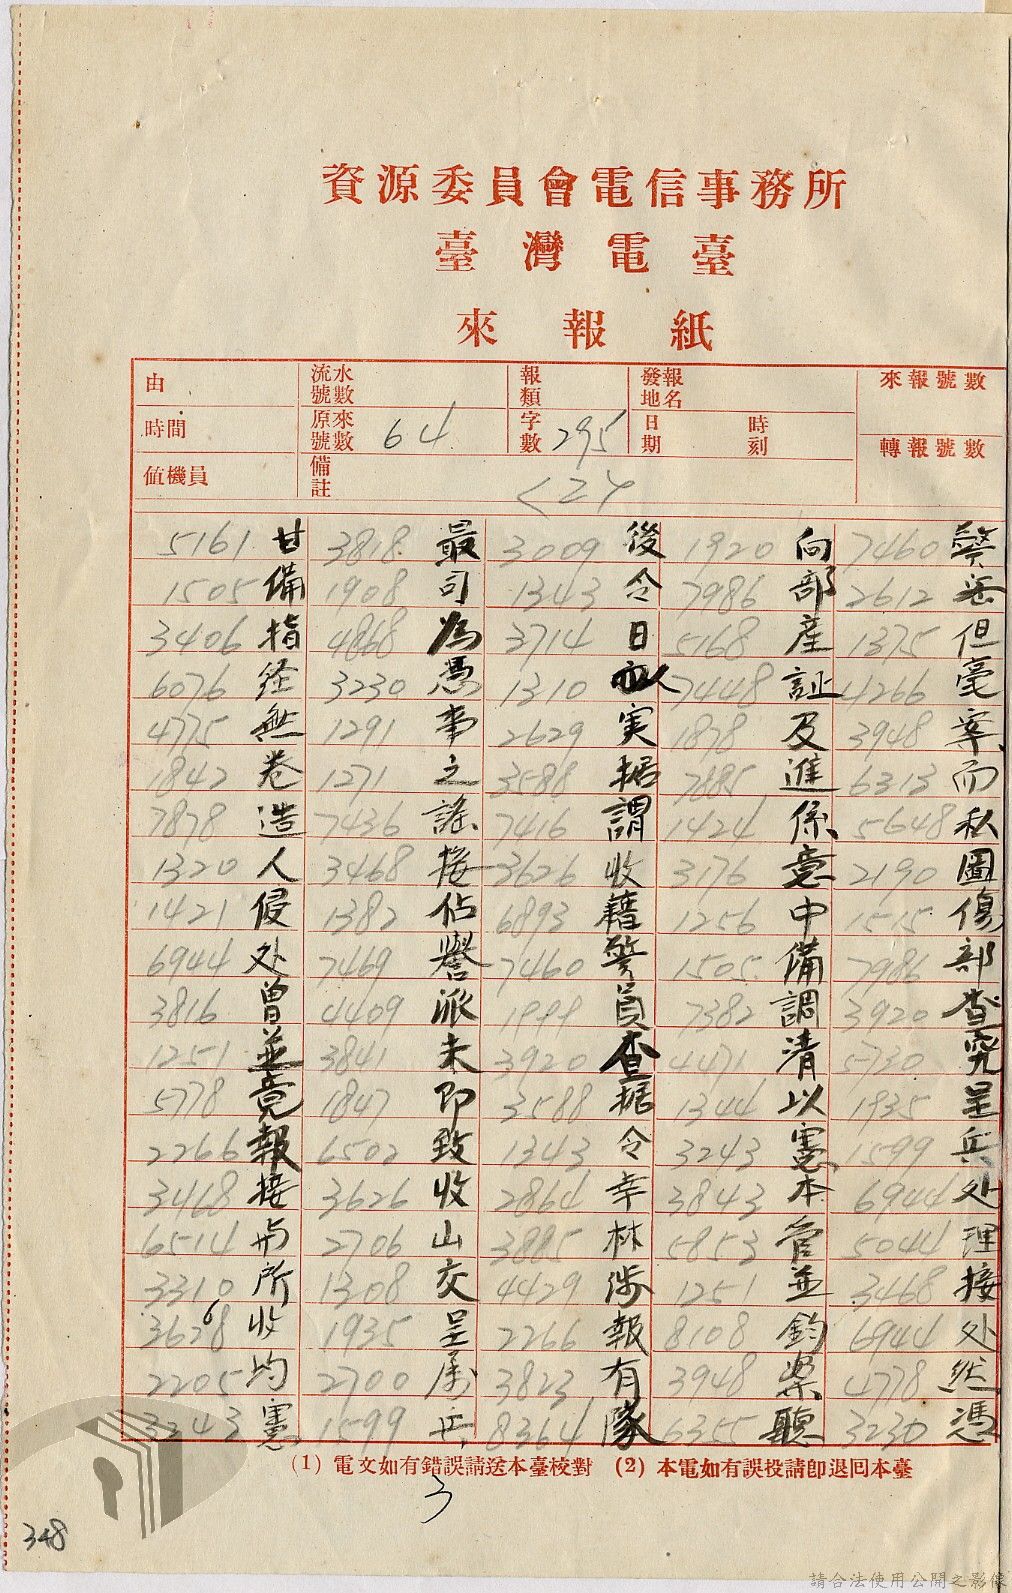 資源委員會電信事務所
臺灣電臺
來報紙
由 流水號數 報類 發報地名 來報號數
時間 原來號數 64 字數 295 日期 時刻 轉報號數
值機員 備註 <24
5161 甘 3818 最 3009 後 1920 向 7460 警
1505 備 1908 司 1343 令 7986 部 2612 妄
3406 指 4868 為 3714 日 5168 產 1375 但
6076 经 3230 憑 1310 以 7448 証 4266 毫
4775 無 1291 事 2629 実 1878 及 3948 案
1842 卷 1271 之 3588 据 7885 進 6313 而
7878 造 7436 謠 7416 謂 1424 係 5648 私
1320 人 3468 接 3626 收 3176 意 2190 圖
1421 侵 1382 佔 6893 籍 1256 中 1515 傷
6944 处 7469 譽 7460 警 1505 備 7986 部
3816 曾 4409 派 1999 員 7382 調 3920 查
1251 並 3841 未 3920 查 4471 清 5730 究
5778 竟 1847 即 3588 据 1344 以 1935 呈
2266 報 6502 致 1343 令 3243 憲 1599 兵
3468 接 3626 收 2864 幸 3843 本 6944 处
6514 与 2706 山 3885 林 5853 管 5044 理
3310 所 1308 交 4429 涉 1251 並 3468 接
3628 6 收 1935 呈 2266 報 8108 鈞 6944 处
2205 均 2700 屬 3823 有 3948 案 4778 然
3243 憲 1599 兵 8364 隊 6355 聽 3230 憑
(1) 電文如有錯誤請送本臺校對 (2) 本電如有誤投請卽退回本臺
3
348
請合法使用公開之影像